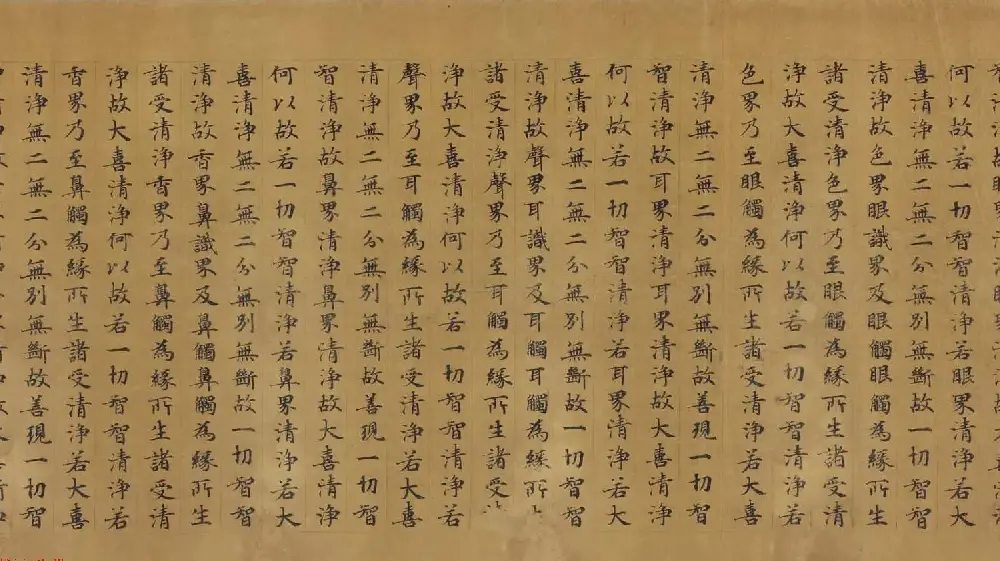 何以故若一切智智清淨若眼界清淨若大
喜清淨無二無二分無別無斷故一切智智
清淨故色界眼識界及眼觸眼觸為緣所生
諸受清淨色界乃至眼觸為緣所生諸受清
淨故大喜清淨何以故若一切智智清淨若
色界乃至眼觸為緣所生諸受清淨若大喜
清淨無二無二分無別無斷故善現一切智
智清淨故耳界清淨耳界清淨故大喜清淨
何以故若一切智智清淨若耳界清淨若大
喜清淨無二無二分無別無斷故一切智智
清淨故聲界耳識界及耳觸耳觸為緣所
諸受清淨聲界乃至耳觸為緣所生諸受
淨故大喜清淨何以故若一切智智清淨若
聲界乃至耳觸為緣所生諸受清淨若大喜
清淨無二無二分無別無斷故善現一切智
智清淨故鼻界清淨鼻界清淨故大喜清淨
何以故若一切智智清淨若鼻界清淨若大
喜清淨無二無二分無別無斷故一切智智
清淨故香界鼻識界及鼻觸鼻觸為緣所生
諸受清淨香界乃至鼻觸為緣所生諸受清
淨故大喜清淨何以故若一切智智清淨若
香界乃至鼻觸為緣所生諸受清淨若大喜
清淨無二無二分無別無斷故善現一切智